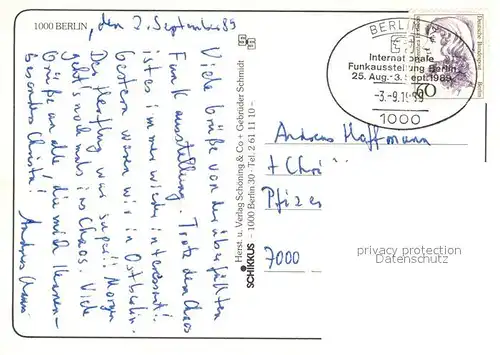 1000 BERLIN, den 2. September 89
Viele Grüße von der überfüllten
Funkausstellung. Trotz dem Chaos
ist es immer wieder interessant!
Gestern waren wir in Ostberlin.
Der Herflug war super!! Morgen
geht's nochmals ins Chaos. Viele
Grüße an alle die mich kennen -
besonders Christa!
Andreas
Herst. u. Verlag Schöning & Co + Gebrüder Schmidt
SCHIKKUS – 1000 Berlin 30 · Tel. 2 61 11 10 –
BERLIN
Internationale
Funkausstellung Berlin
25. Aug.-3. Sept. 1989
-3.-9.1989
1000
Deutsche Bundespost
Berlin
60
Andreas Hoffmann
+ Chri
Pfizes
7000
privacy protection
AnsichtsKarten-Center.de